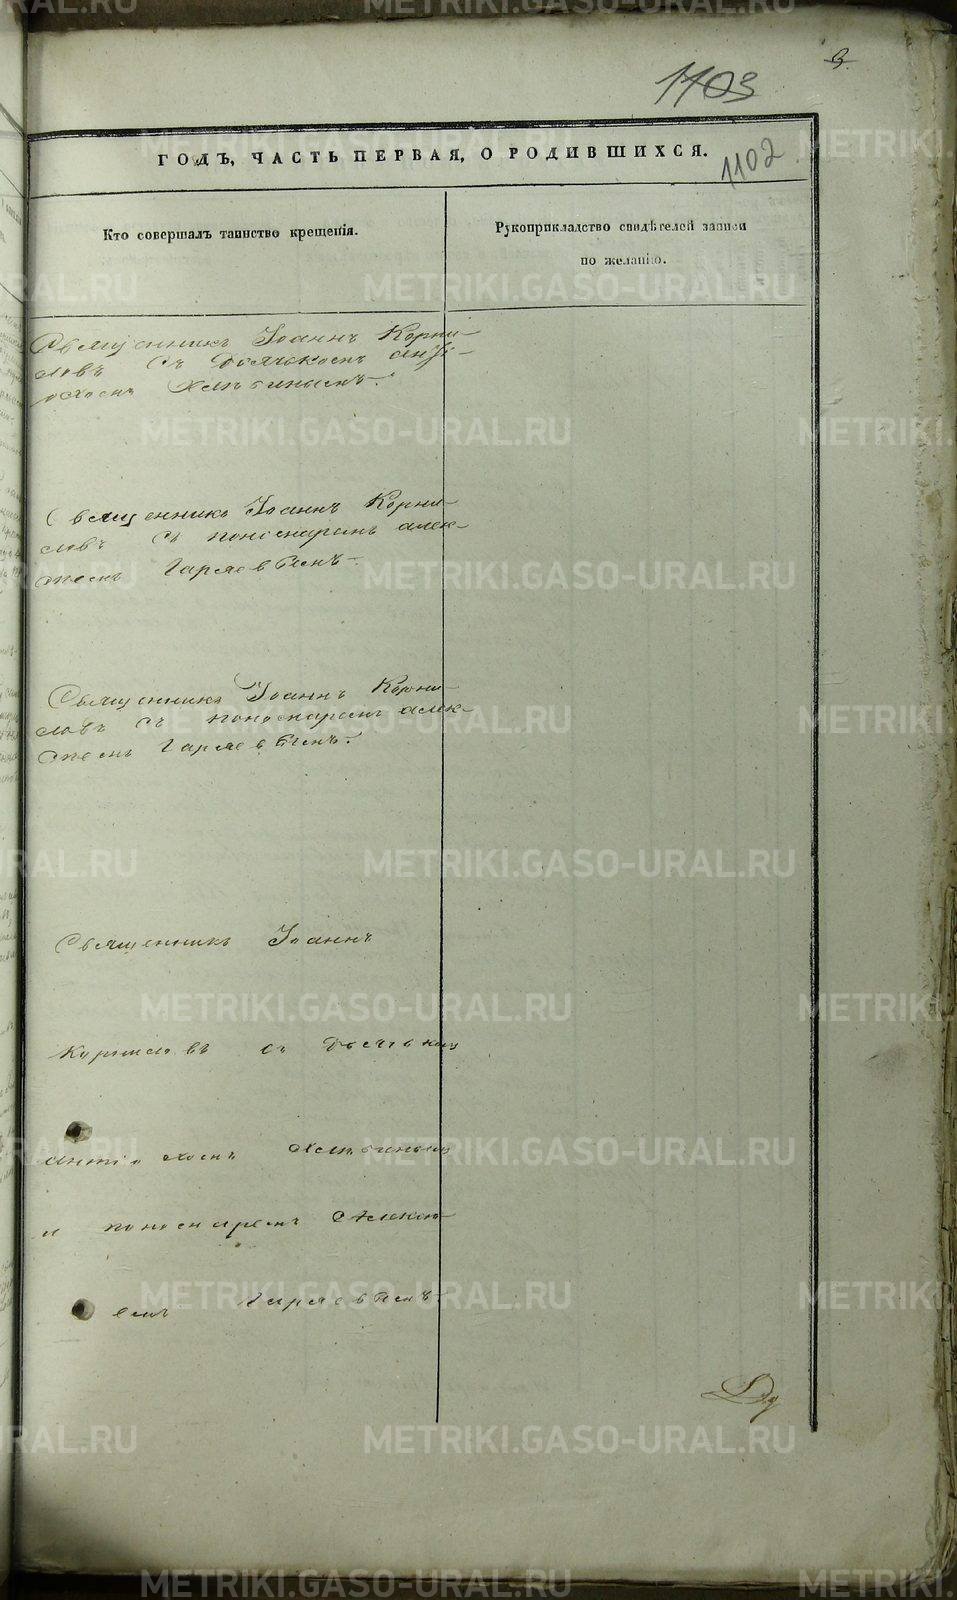 1103
1102
ГОДЪ, ЧАСТЬ ПЕРВАЯ, О РОДИВШИХСЯ.
Кто совершалъ таинство крещенія.
Рукоприкладство свидѣтелей записи
по желанію.
Священникъ Іоаннъ Корни-
ловъ Съ Дьячкомъ анті-
охомъ Хлѣбинымъ
Священникъ Іоаннъ Корни-
ловъ Съ пономаремъ алек-
сѣемъ Гаряевымъ
Священникъ Іоаннъ Корни-
ловъ Съ пономаремъ алек-
сѣемъ Гаряевымъ
Священникъ Іоаннъ
Корниловъ съ Дьячкомъ
антіохомъ Хлѣбинымъ
и пономаремъ Алексѣ-
емъ Гаряевымъ
METRIKI.GASO-URAL.RU